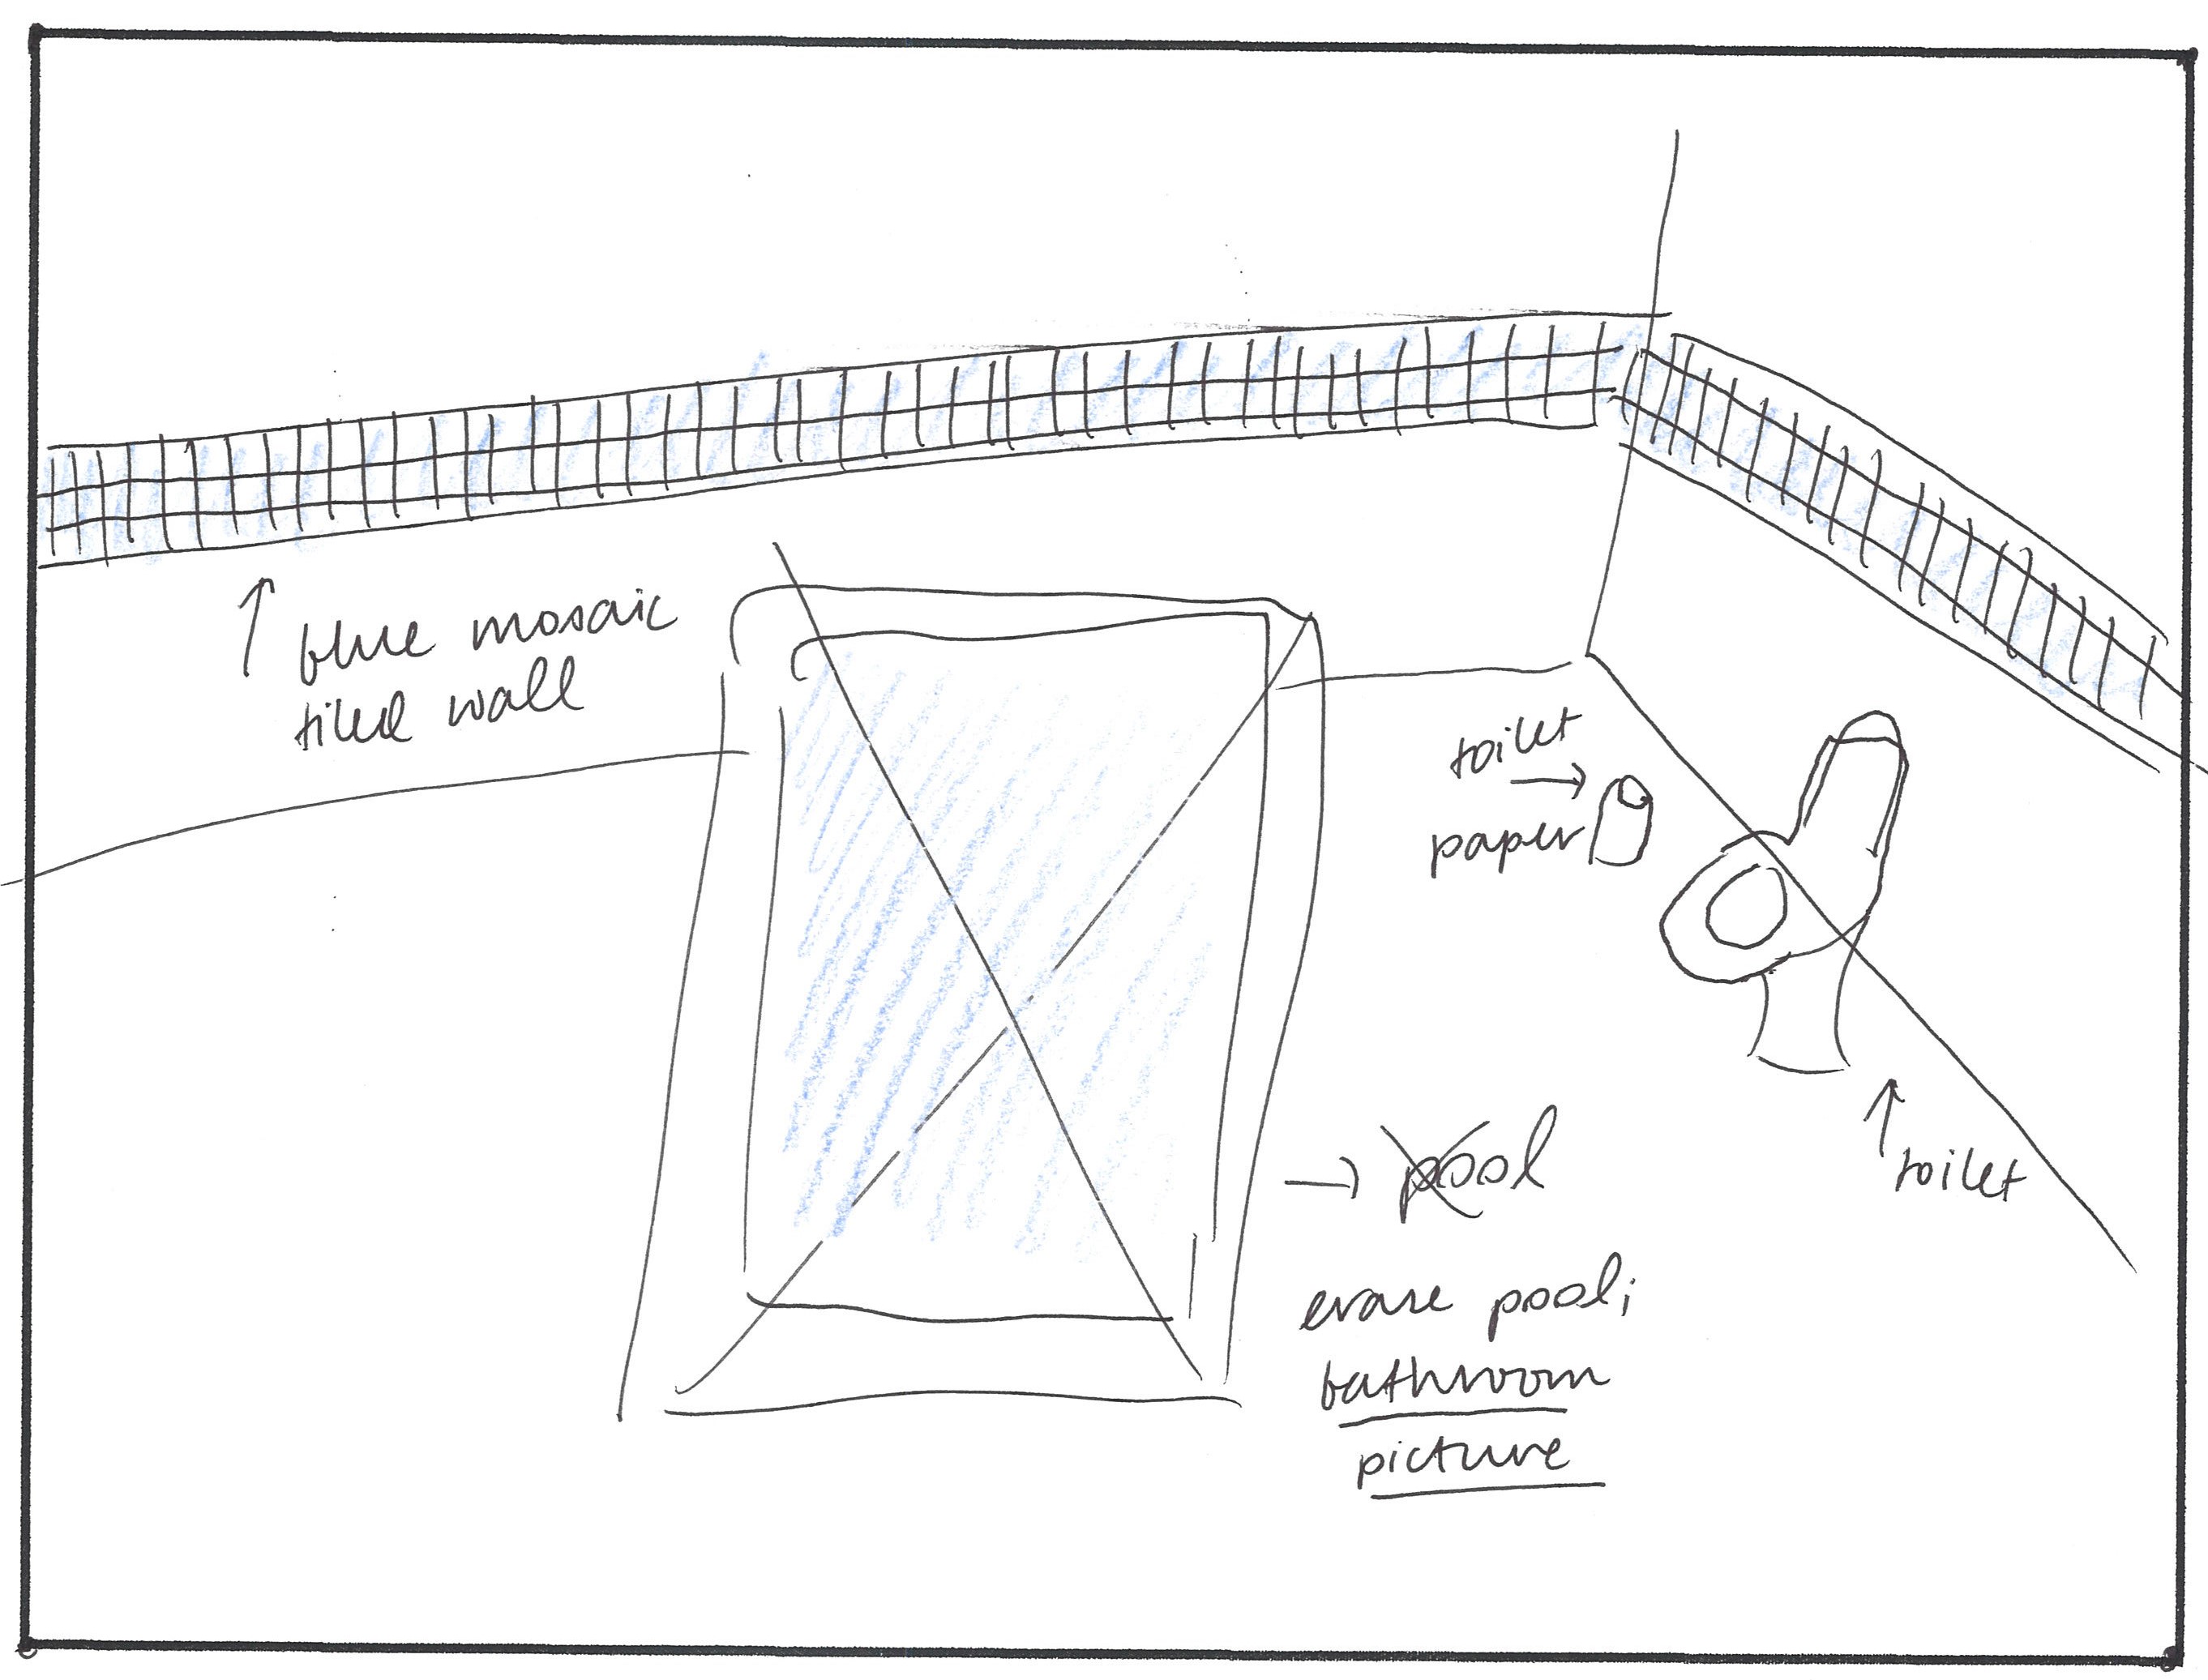 blue mosaic
tiled wall
toilet
paper
toilet
pool
erase pool;
bathroom
picture